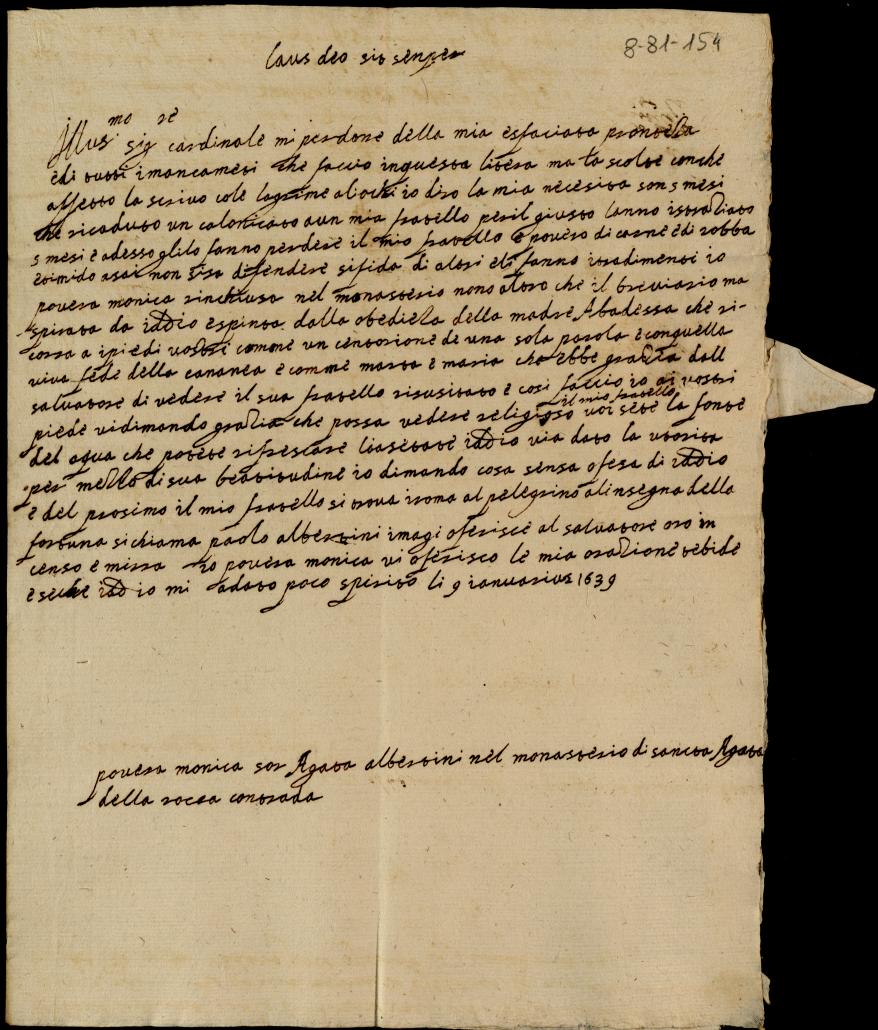 8-81-154
laus deo sit senper
Illus.mo re
sig cardinale mi perdone della mia esfaciata prontezza
e di tutti i mancameti che faccio in questa litera ma la scolte con che
affetto la scrivo cole lagrime a li ochi io diro la mia necesita son 5 mesi
che ricaduto un calonicato a un mia fratello per il giusto lanno istraziato
5 mesi e adesso glilo fanno perdere il mio fratello e povero di carne e di robba
e timido asai non si sa difendere si fida di altri e li fanno itradimenti io
povera monica rinchiusa nel monasterio nono altro che il breviario ma
spirata da iddio e spinta dalla obedieza della madre Abadessa che ri-
corra a i piedi vostri comme un centorione de una sola parola e con quella
viva fede della cananea e comme marta e maria che ebbe grazia dall
salvatore di vedere il sua fratello risusitato e cosi faccio io ai vostri
piede vi dimando grazia che possa vedere il mio fratello religioso voi sete la fonte
del aqua che potete rifrescare li asetate iddio via dato la utorita
per mezzo di sua beatitudine io dimando cosa sensa ofesa di iddio
e del prosimo il mio fratello si trova iroma al pelegrino alinsegna della
fortuna si chiama paolo albertini i magi oferisce al salvatore oro in
censo e mirra io povera monica vi oferisco le mia orazione tebide
e seche iddio mi adato poco spirito li 9 ianuarius 1639
povera monica sor Agata albertini nel monasterio di sancta Agata
della rocca contrada